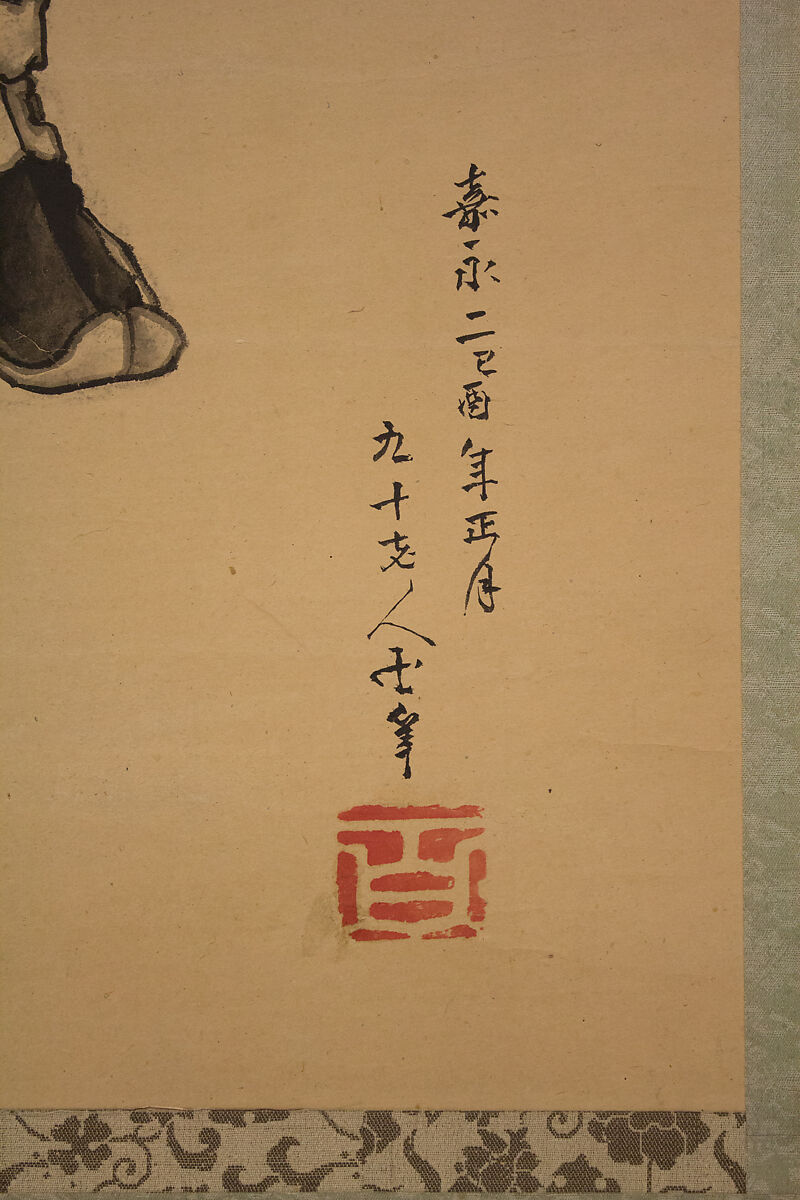 嘉永二己酉年正月
九十老人卍筆
百